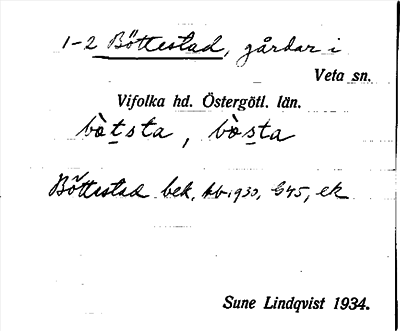 1-2 Böttestad, gårdar i
Veta sn.
Vifolka hd. Östergötl. län.
bò̀tsta, bòsta
Böttestad bek. Ab 1930, G45, ek
Sune Lindqvist 1934.